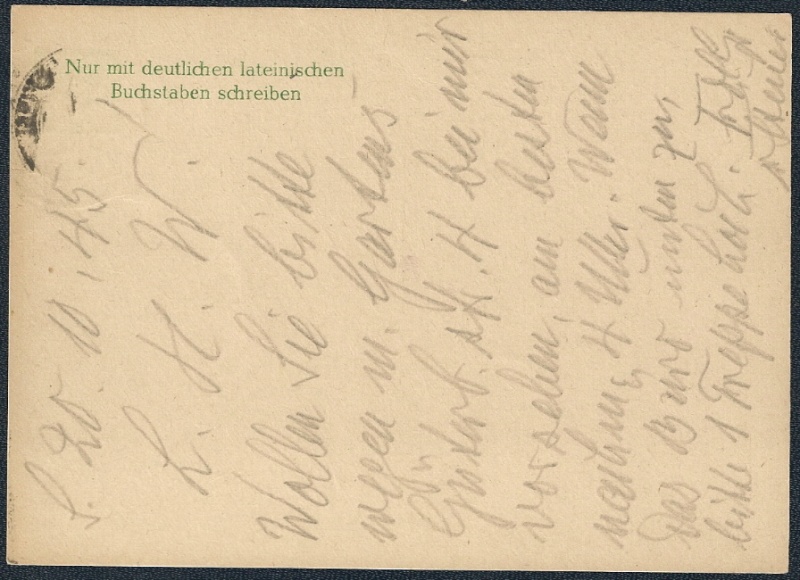 Nur mit deutlichen lateinischen
Buchstaben schreiben
L. 20. 10. 45.
L. H. W.
Wollen Sie bitte
wegen m. Gartens
bei mir
vorsehen, am besten
nachm. 4 Uhr. Wenn
das Büro unten zu,
bitte 1 Treppe hoch.